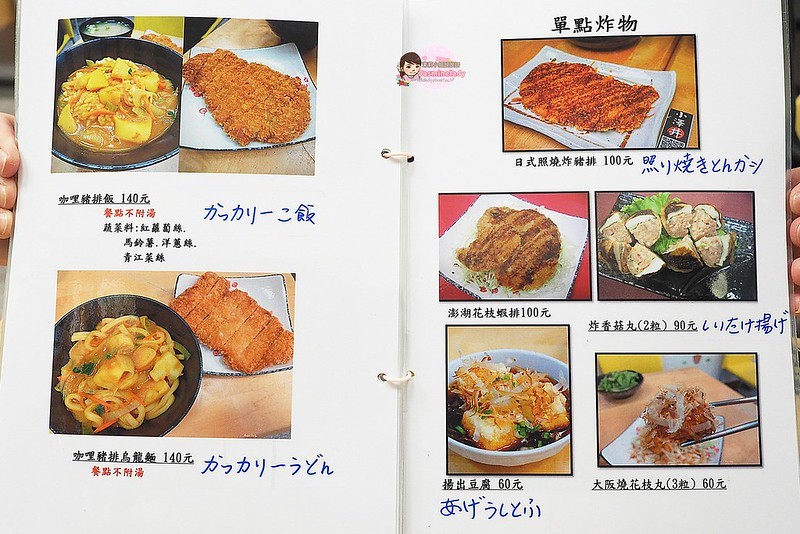 咖哩豬排飯 140元
餐點不附湯
蔬菜料:紅蘿蔔絲.
馬鈴薯.洋蔥絲.
青江菜絲
カッカリーご飯
咖哩豬排烏龍麵 140元
餐點不附湯
カッカリーうどん
單點炸物
Jasminelady
小澤丼
日式照燒炸豬排 100元
照り焼きとんガシ
澎湖花枝蝦排100元
炸香菇丸(2粒) 90元
しいたけ揚げ
揚出豆腐 60元
あげうしとふ
大阪燒花枝丸(3粒) 60元